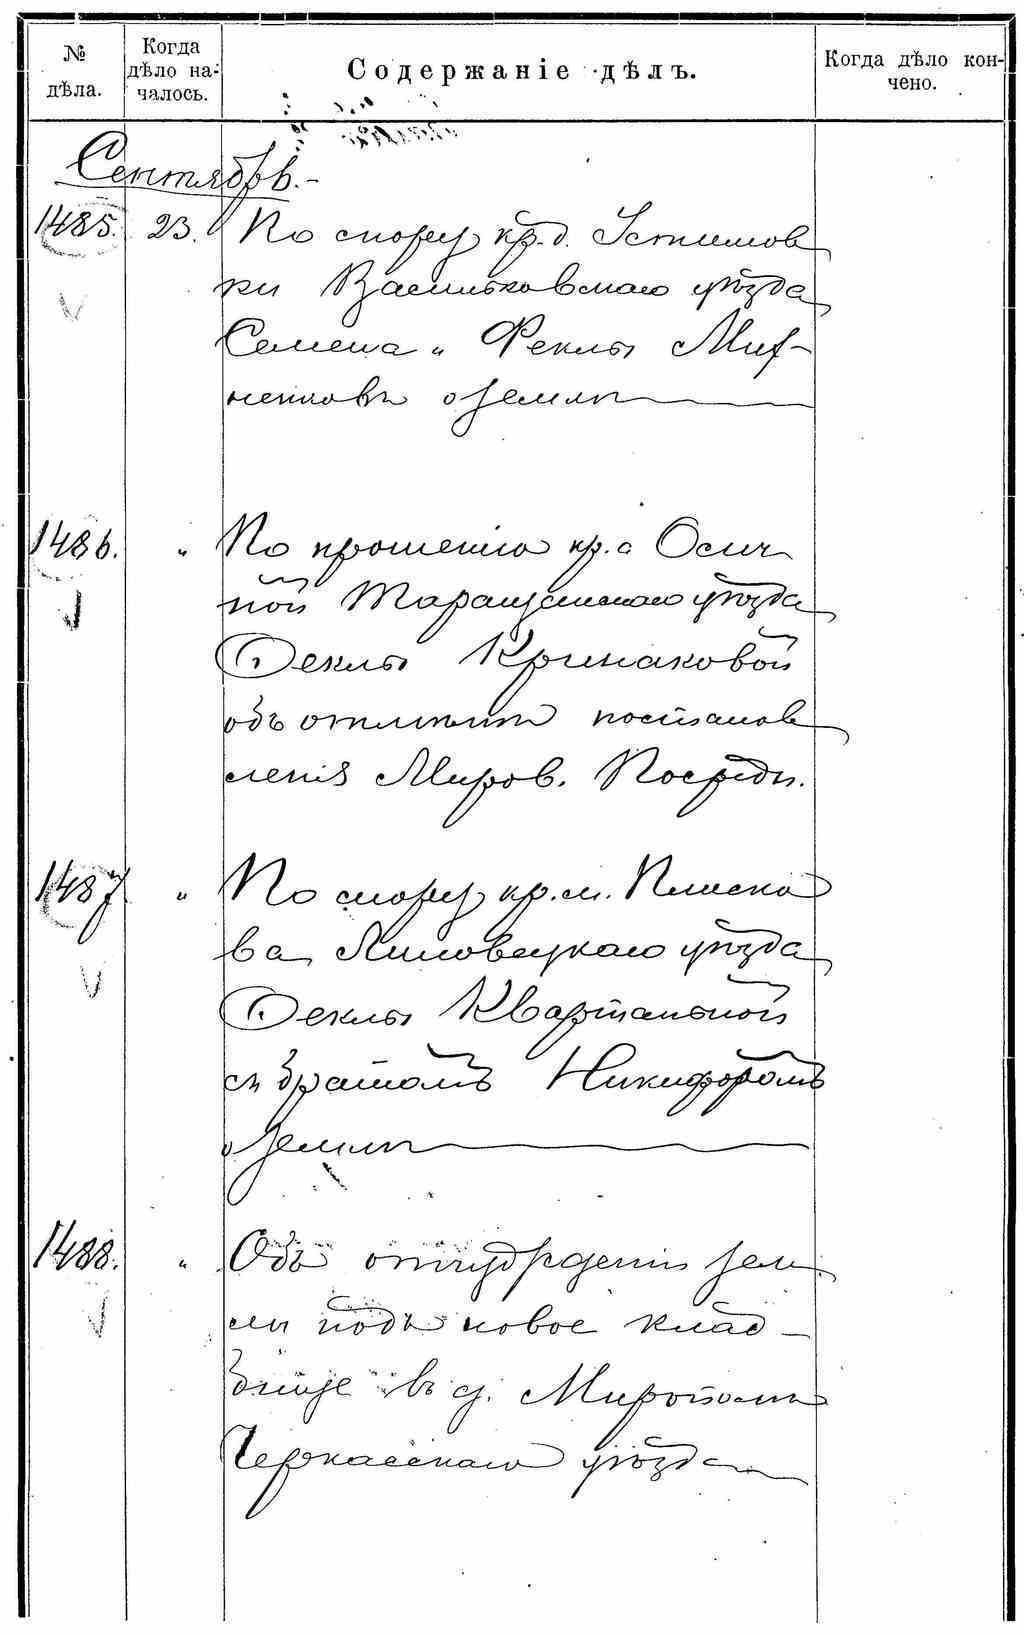 № дѣла.
Когда дѣло на-
чалось.
Содержаніе дѣлъ.
Когда дѣло кон-
чено.
Сентябрь.
1485. 23. По спору кр. д. Устимов
ки Васильковскаго уѣзда
Семена и Феклы
о землѣ
1486. " По прошенію кр. с Осич
ной Таращанскаго уѣзда
Феклы Кринаковой
объ отмѣнѣ постанов
ленія Миров. Посредн.
1487 " По спору кр. м. Плиско
ва Липовецкаго уѣзда
Феклы Квартальной
съ братомъ Никифоромъ
о землѣ
1488. " Объ отчужденіи зем
ли подъ новое клад-
бище въ с. Мирополѣ
Черкасскаго уѣзда